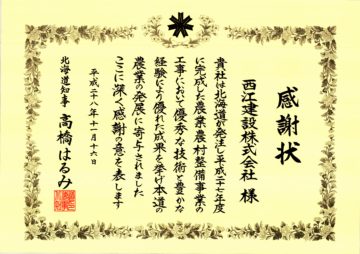 感謝状
西江建設株式会社 様
貴社は北海道が発注し平成二十七年度
に完成した農業農村整備事業の
工事において優秀な技術と豊かな
経験により優れた成果を挙げ本道の
農業の発展に寄与されました
ここに深く感謝の意を表します
平成二十八年十一月十六日
北海道知事 高橋はるみ